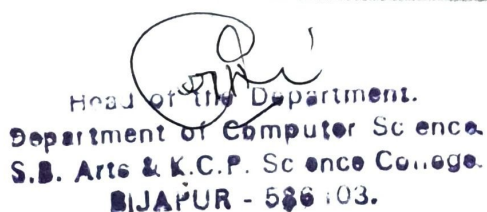 Head of the Department.
Department of Computer Science.
S.B. Arts & K.C.P. Science College.
BIJAPUR - 586103.